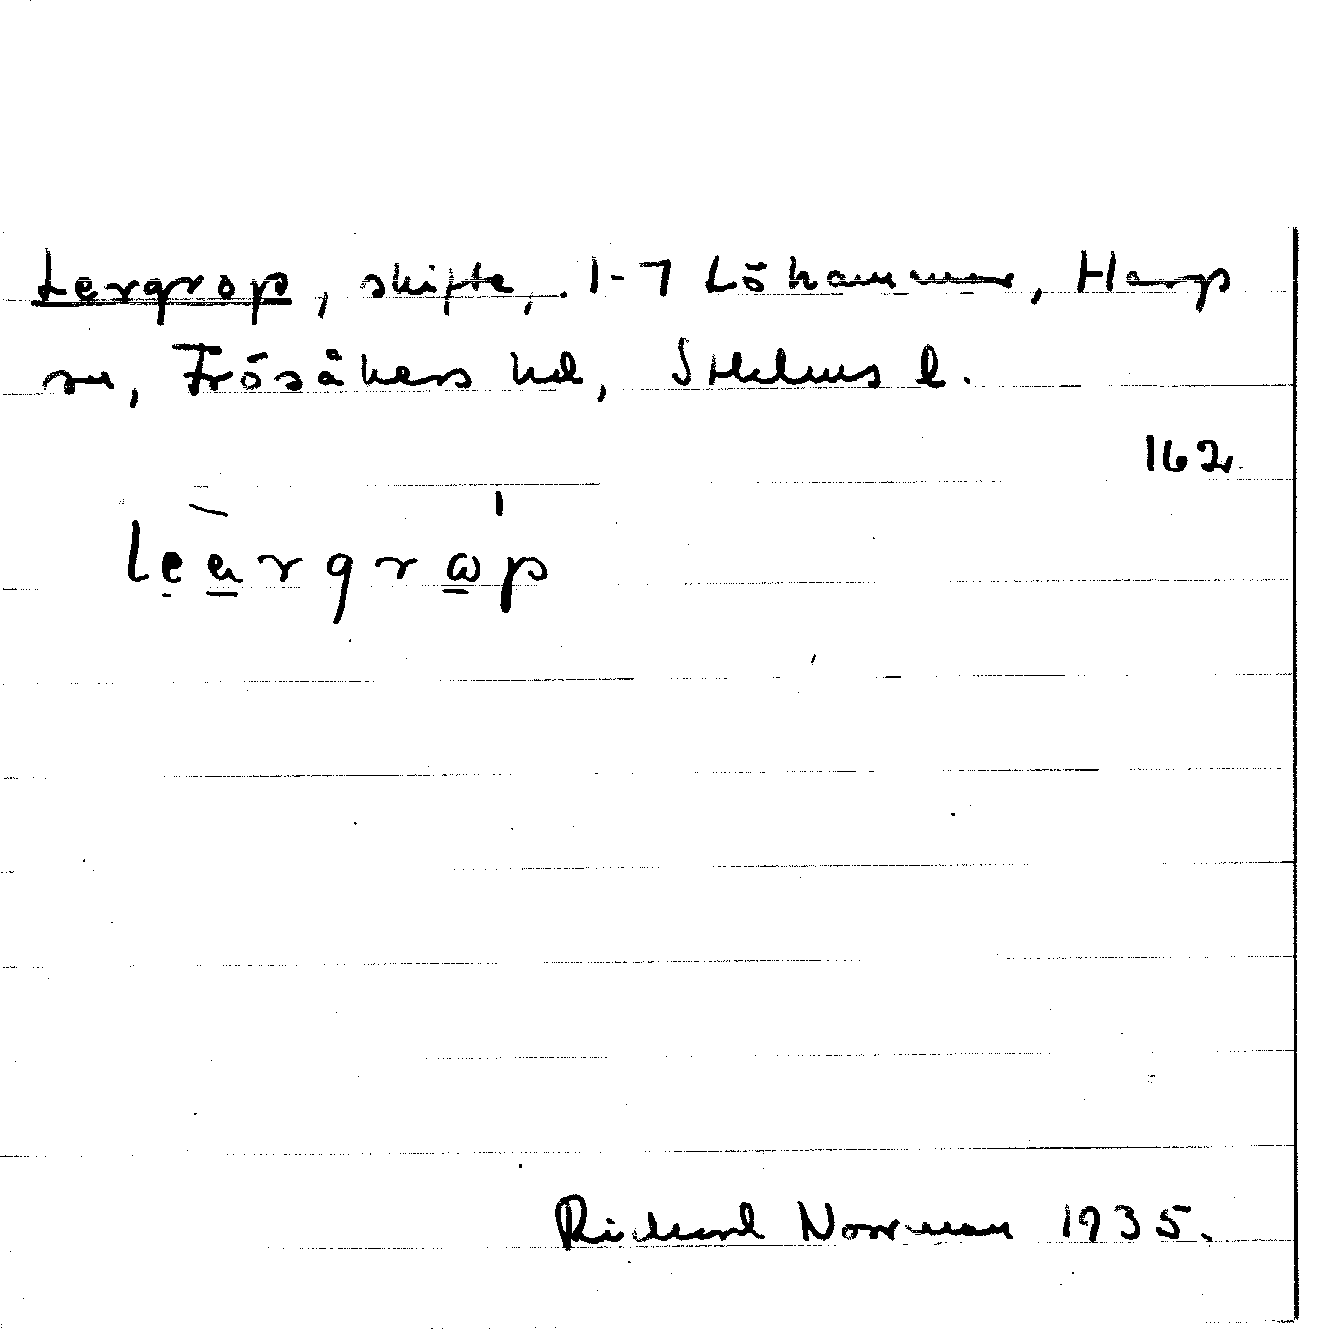 Lergrop, skifte, 1-7 Löhammar, Hargs
sn, Frösåkers hd, Sthlms l.
162
Richard Norrman 1935.